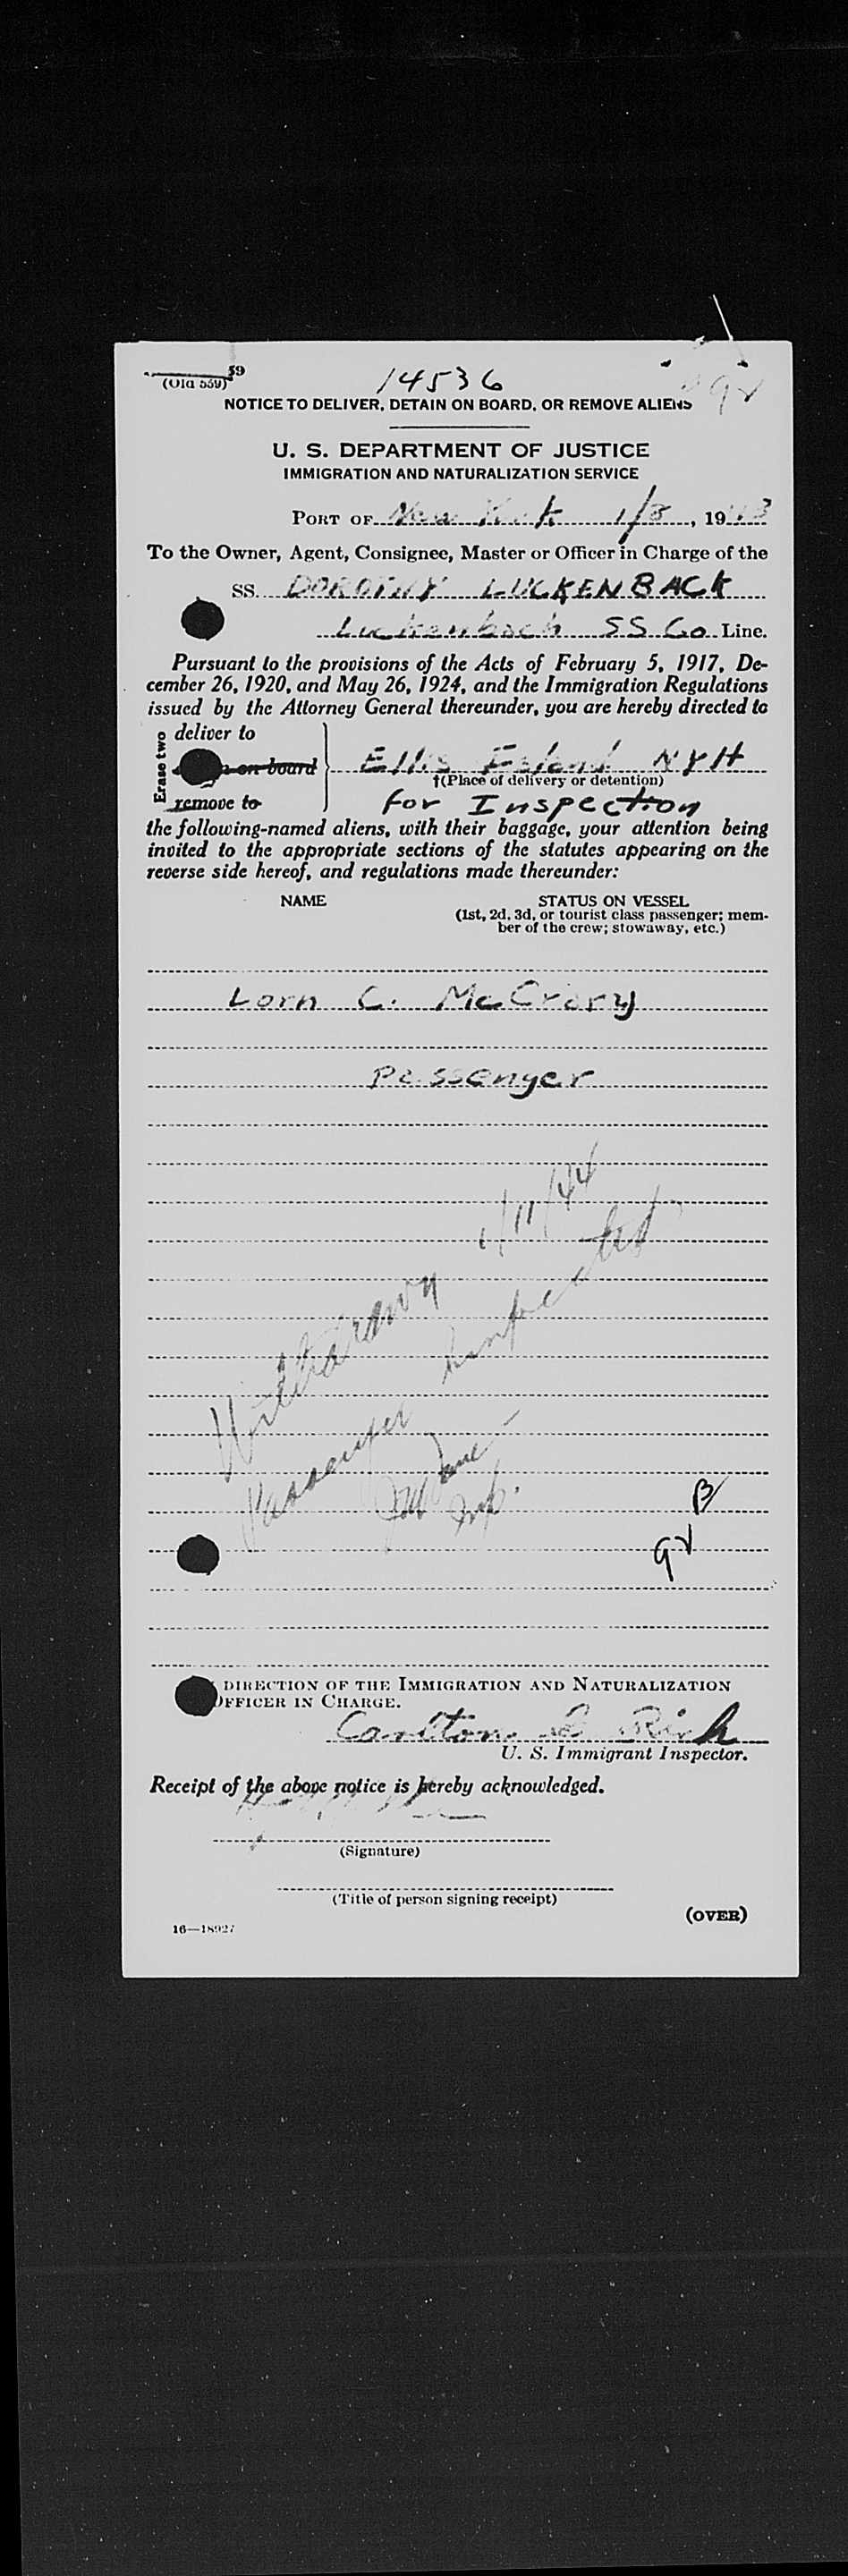 59
(Old 559)
14536
92
NOTICE TO DELIVER, DETAIN ON BOARD, OR REMOVE ALIENS
U. S. DEPARTMENT OF JUSTICE
IMMIGRATION AND NATURALIZATION SERVICE
PORT OF New York 1/8, 1943
To the Owner, Agent, Consignee, Master or Officer in Charge of the
SS. DOROTHY LUCKENBACK
Luckenbach SS Co Line.
Pursuant to the provisions of the Acts of February 5, 1917, De-
cember 26, 1920, and May 26, 1924, and the Immigration Regulations
issued by the Attorney General thereunder, you are hereby directed to
Erase two
deliver to
on board
remove to
Ellis Island NYH
†(Place of delivery or detention)
for Inspection
the following-named aliens, with their baggage, your attention being
invited to the appropriate sections of the statutes appearing on the
reverse side hereof, and regulations made thereunder:
NAME
STATUS ON VESSEL
(1st, 2d, 3d, or tourist class passenger; mem-
ber of the crew; stowaway, etc.)
Lorn C. McCrory
Passenger
Withdrawn 1/11/44
Passenger inspected
Insp.
B
92
DIRECTION OF THE IMMIGRATION AND NATURALIZATION
OFFICER IN CHARGE.
Carlton Rich
U. S. Immigrant Inspector.
Receipt of the above notice is hereby acknowledged.
(Signature)
(Title of person signing receipt)
16—18927
(OVER)